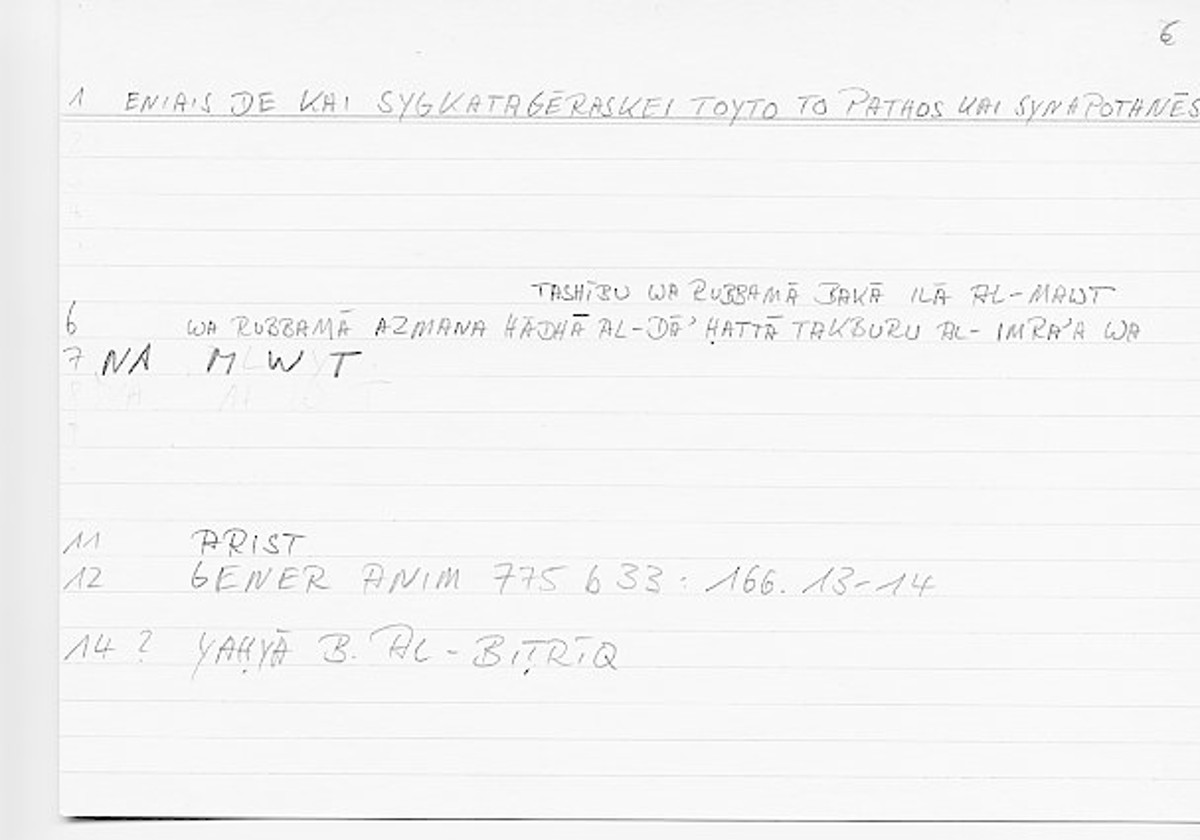 6
1 ENIAIS DE KAI SYGKATAGĒRASKEI TOYTO TO PATHOS KAI SYNAPOTHNĒS
TASHĪBU WA RUBBAMĀ BAKĀ ILĀ AL-MAWT
6 WA RUBBAMĀ AZMANA HĀDHĀ AL-DĀ' ḤATTĀ TAKBURU AL-IMRA'A WA
7 NA M W T
11 ARIST
12 GENER ANIM 775 b 33 : 166. 13-14
14 ? YAḤYĀ B. AL-BIṬRĪQ